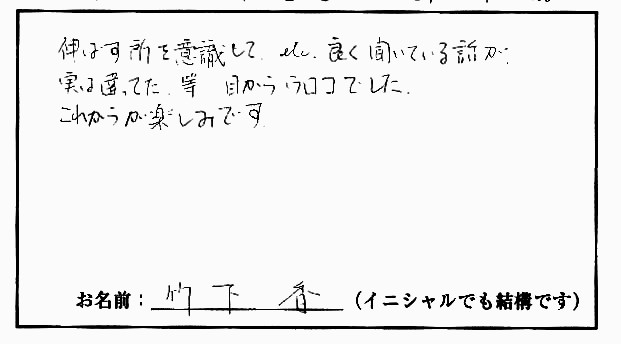 伸ばす所を意識して、etc. 良く聞いている話が、
実は違ってた、等 目からウロコでした。
これからが楽しみです
お名前：竹下 香 （イニシャルでも結構です）